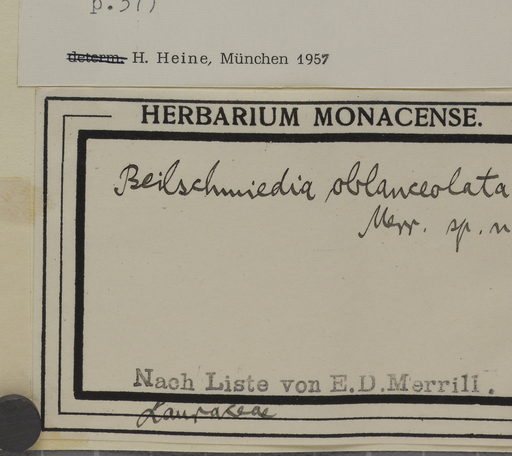 p. 371
determ. H. Heine, München 1957
HERBARIUM MONACENSE.
Beilschmiedia oblanceolata
Merr. sp. n
Nach Liste von E.D.Merrill.
Lauraceae